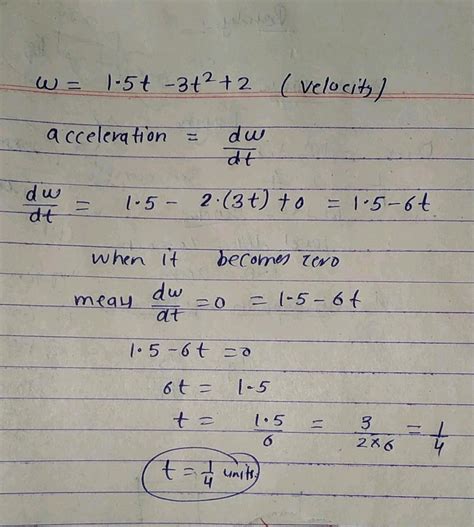 ω = 1.5t - 3t² + 2 (velocity)
acceleration = dω/dt
dω/dt = 1.5 - 2.(3t) + 0 = 1.5 - 6t
when it becomes zero
mean dω/dt = 0 = 1.5 - 6t
1.5 - 6t = 0
6t = 1.5
t = 1.5/6 = 3/2×6 = 1/4
t = 1/4 units.